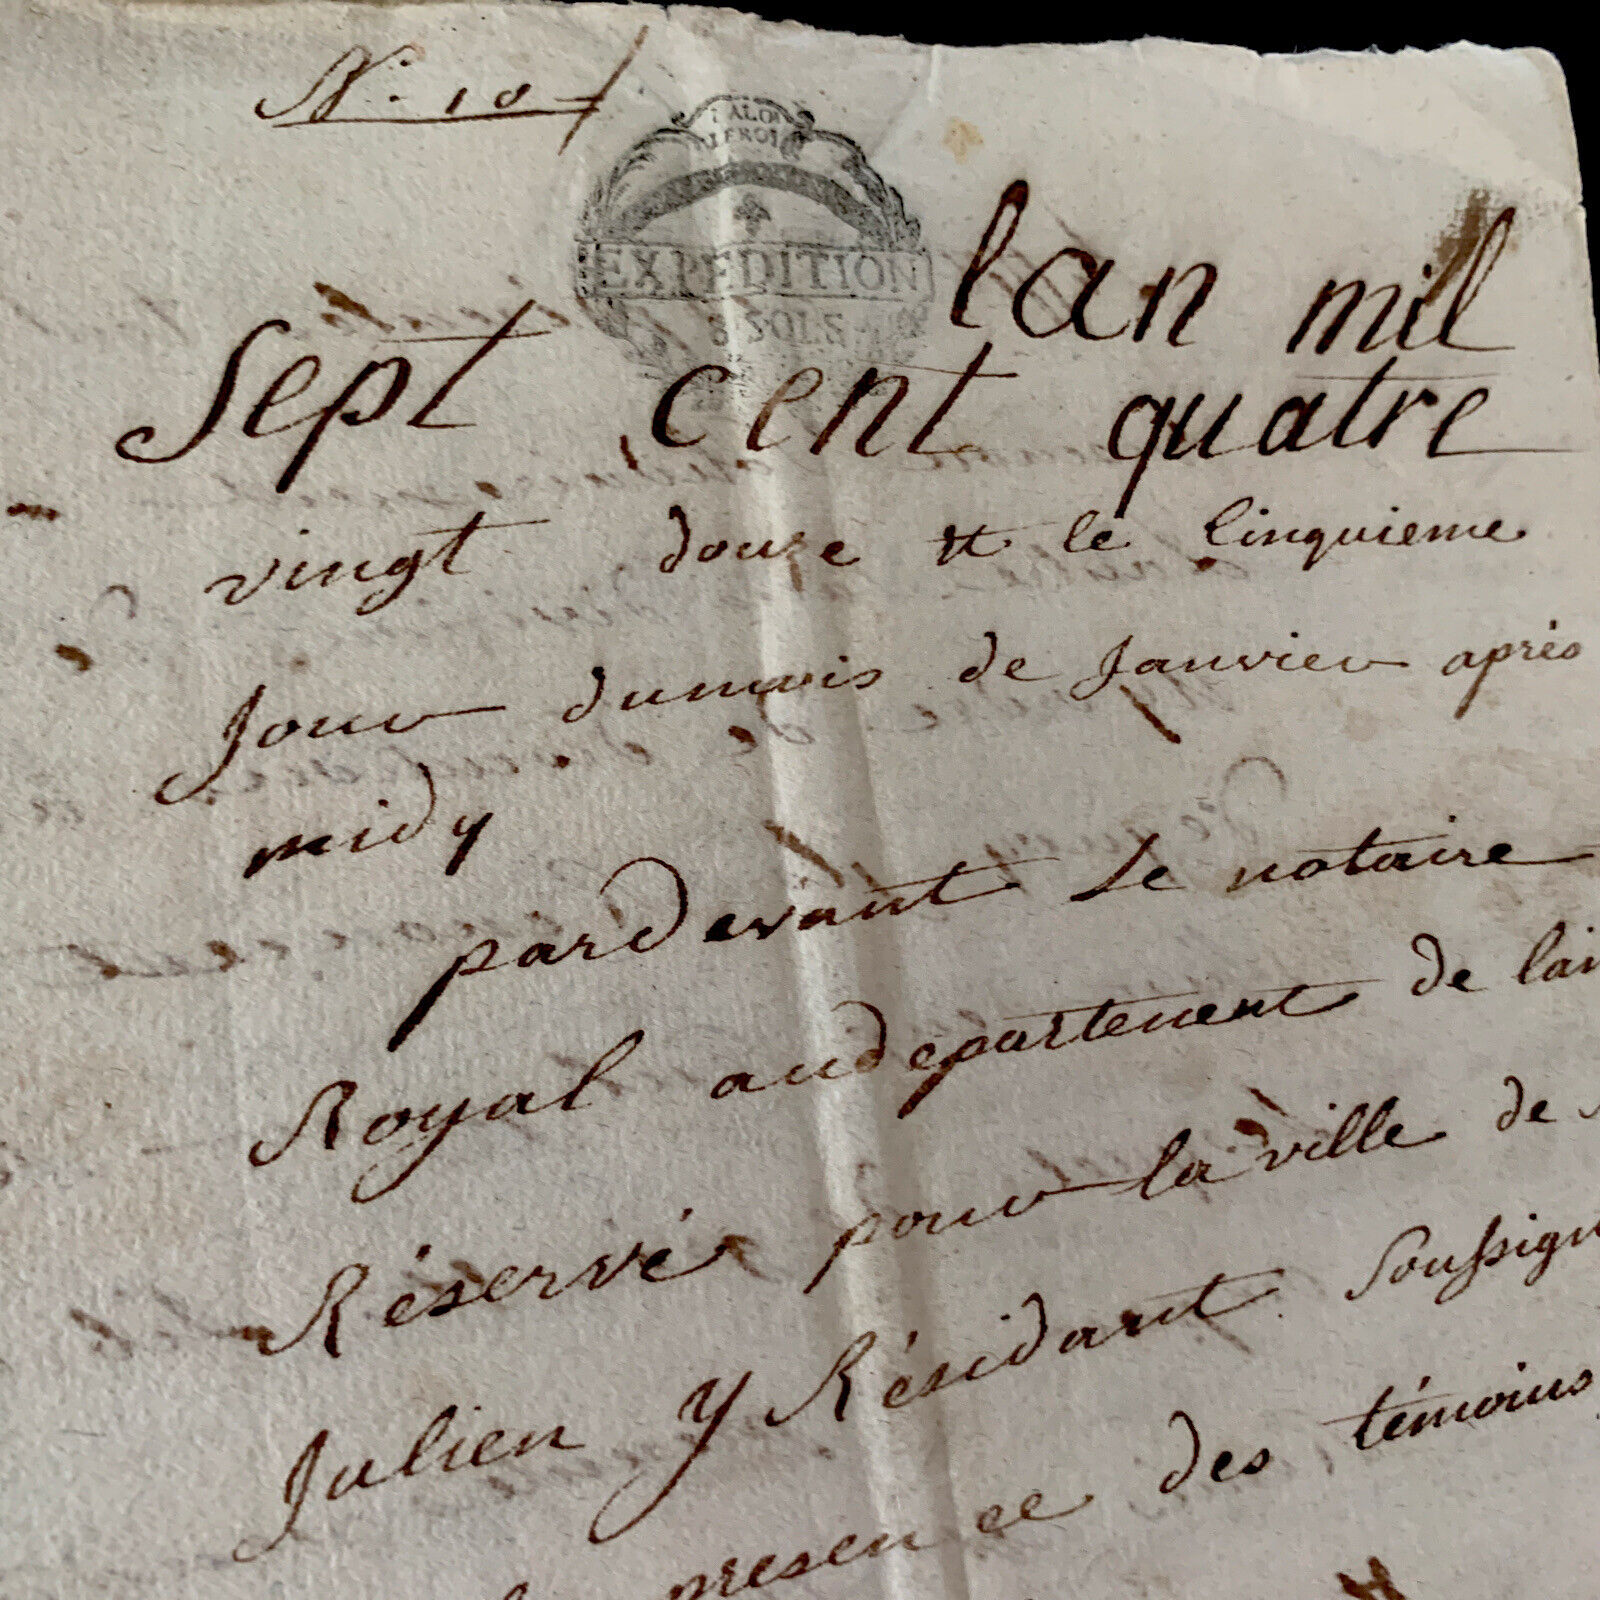 N. 10
LALOI
LEROI
EXPEDITION
8 SOLS
lan mil
Sept cent quatre
vingt douze et le Cinquieme
Jour dumois de Janvier aprés
midy
pardevant Le notaire
Royal audepartement de lain
Réservé pour la ville de
Julien y Résidant Soussign
presence des témoins